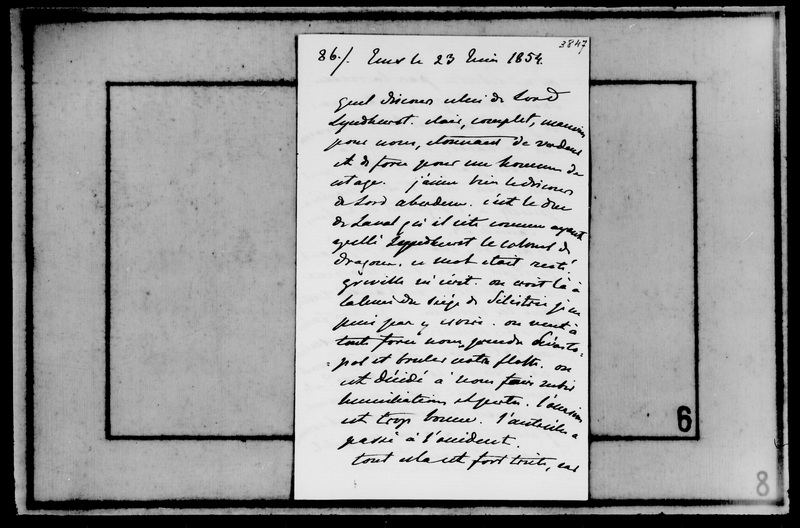 3847
86./. Ems le 23 Juin 1854.
quel discours celui de Lord
Lyndhurst. clair, complet, mauvais
pour nous, étonnant de verdeur
et de force pour un homme de
cet age. j'aime bien le discours
de Lord aberdeen. c'est le duc
de Laval qui
appellé Lyndhurst le colonel de
dragons. ce mot était resté.
gréville m'écrit. on croit là à
la levée du siège de Silistrie je ne
puis pas y croire. on veut à
toute force nous prendre Sévasto-
-pol et bruler notre flotte. on
est décidé à nous faire subir
humiliations et pertes. l'occasion
est trop bonne. l'autriche a
passé à l'occident.
tout cela est fort triste, car
6
8